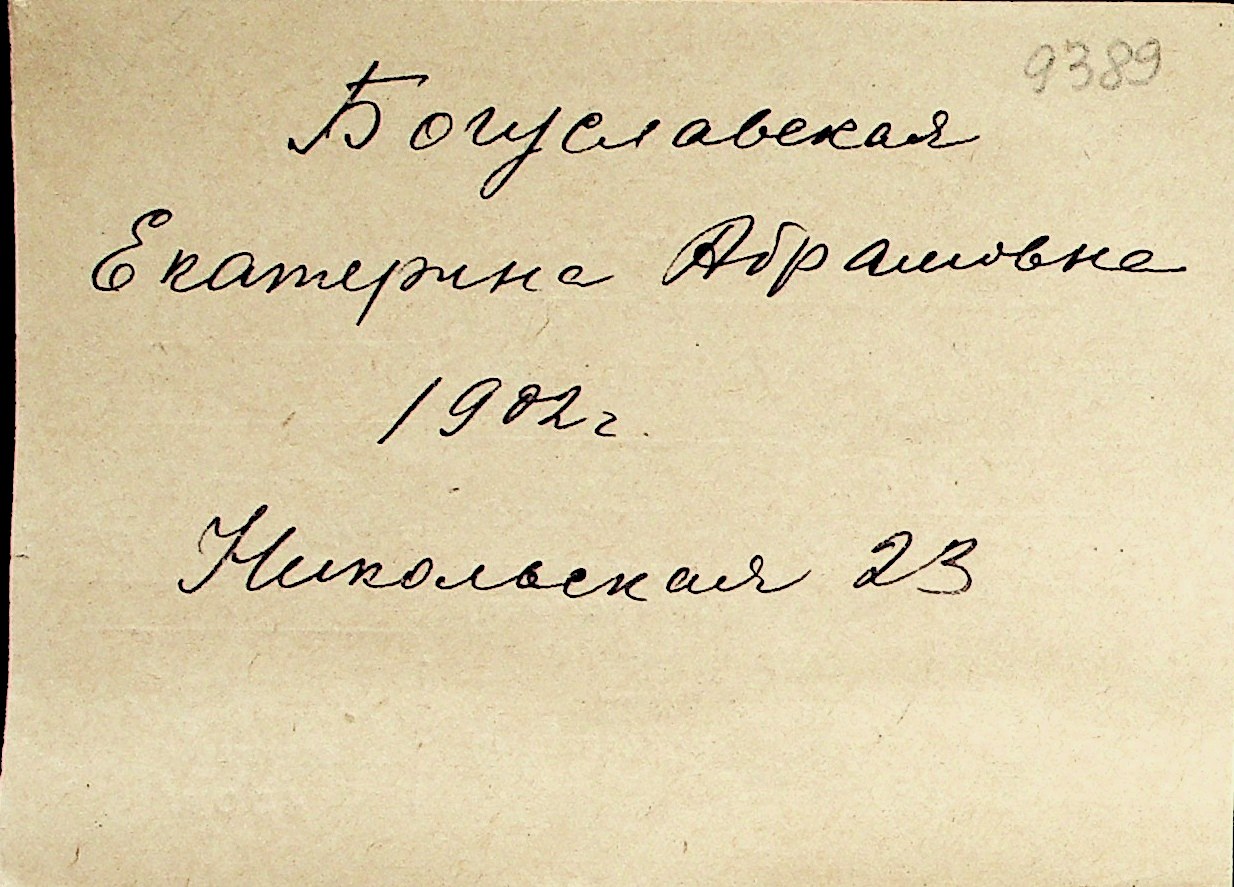 9389
Богуславская
Екатерина Абрамовна
1902г.
Никольская 23